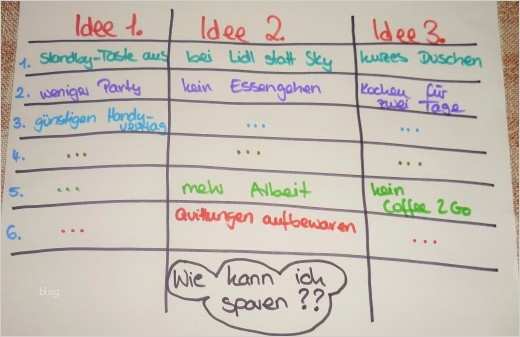 Idee 1. Idee 2. Idee 3.
1. Standby-Taste aus bei Lidl statt Sky kurzes Duschen
2. weniger Party kein Essengehen Kochen für
zwei Tage
3. günstigen Handy-
vertrag ... ...
4. ... ... ...
5. ... mehr Arbeit kein
Coffee 2 Go
6. ... Quittungen aufbewaren ...
Wie kann ich
sparen ??
blog